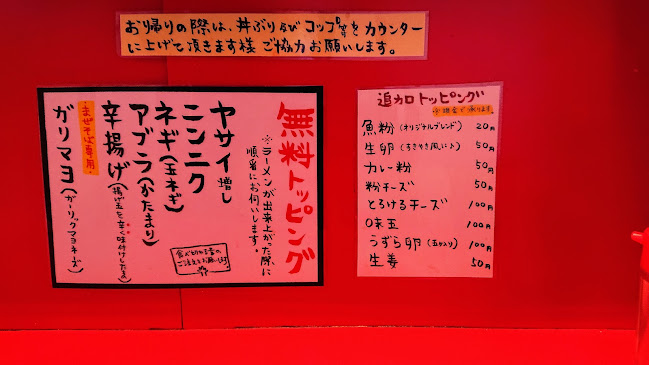 お帰りの際は、丼ぶり及びコップ等をカウンター
に上げて頂きます様ご協力お願いします。
無料トッピング
※ラーメンが出来上がった際に
順番にお伺いします。
ヤサイ増し
ニンニク
ネギ(玉ネギ)
アブラ(かたまり)
辛揚げ(揚げ玉を辛く味付けしたもの)
まぜそば専用
ガリマヨ(ガーリックマヨネーズ)
食べ切れる量の
ご注文をお願いします
追加トッピング
※現金で承ります。
魚粉(オリジナルブレンド) 20円
生卵(すきやき風に♪) 50円
カレー粉 50円
粉チーズ 50円
とろけるチーズ 100円
味玉 100円
うずら卵(五ケ入り) 100円
生姜 50円